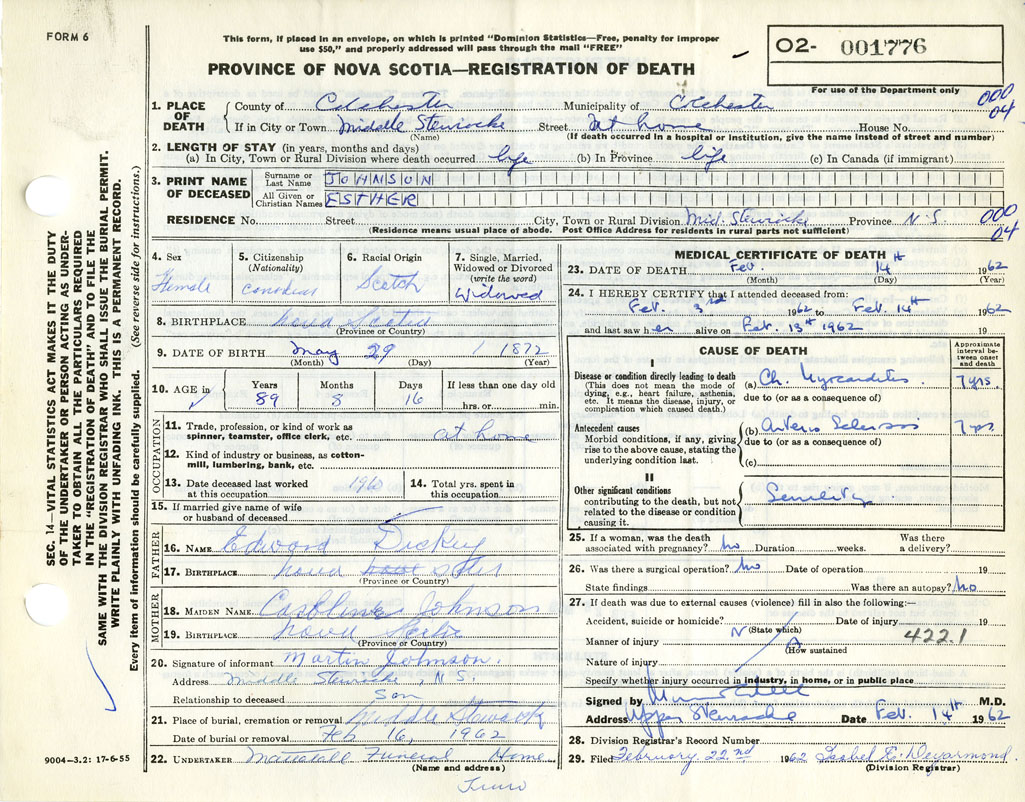 FORM 6
This form, if placed in an envelope, on which is printed "Dominion Statistics—Free, penalty for improper
use $50," and properly addressed will pass through the mail "FREE"
PROVINCE OF NOVA SCOTIA—REGISTRATION OF DEATH
02- 001776
For use of the Department only
000
04
1. PLACE OF DEATH
County of Colchester Municipality of Colchester
If in City or Town Middle Stewiacke Street At home House No.
(Name) (If death occurred in a hospital or institution, give the name instead of street and number)
2. LENGTH OF STAY (in years, months and days)
(a) In City, Town or Rural Division where death occurred life (b) In Province life (c) In Canada (if immigrant)
3. PRINT NAME OF DECEASED
Surname or Last Name JOHNSON
All Given or Christian Names ESTHER
RESIDENCE No. Street City, Town or Rural Division Mid. Stewiacke Province N.S.
000
04
(Residence means usual place of abode. Post Office Address for residents in rural parts not sufficient)
SEC. 14—VITAL STATISTICS ACT MAKES IT THE DUTY
OF THE UNDERTAKER OR PERSON ACTING AS UNDER-
TAKER TO OBTAIN ALL THE PARTICULARS REQUIRED
IN THE "REGISTRATION OF DEATH" AND TO FILE THE
SAME WITH THE DIVISION REGISTRAR WHO SHALL ISSUE THE BURIAL PERMIT.
WRITE PLAINLY WITH UNFADING INK. THIS IS A PERMANENT RECORD.
Every item of information should be carefully supplied. (See reverse side for instructions.)
4. Sex
Female
5. Citizenship
(Nationality)
Canadian
6. Racial Origin
Scotch
7. Single, Married,
Widowed or Divorced
(write the word)
Widowed
8. BIRTHPLACE Nova Scotia
(Province or Country)
9. DATE OF BIRTH May 29 1872
(Month) (Day) (Year)
10. AGE in
Years Months Days If less than one day old
89 8 16 hrs. or min.
OCCUPATION
11. Trade, profession, or kind of work as
spinner, teamster, office clerk, etc. at home
12. Kind of industry or business, as cotton-
mill, lumbering, bank, etc.
13. Date deceased last worked
at this occupation 1960
14. Total yrs. spent in
this occupation
15. If married give name of wife
or husband of deceased
FATHER
16. NAME Edward Dickey
17. BIRTHPLACE Nova
(Province or Country)
MOTHER
18. MAIDEN NAME Johnson
19. BIRTHPLACE Nova
(Province or Country)
20. Signature of informant Martin Johnson.
Address Middle Stewiacke, N.S.
Relationship to deceased Son
21. Place of burial, cremation or removal Middle Stewiacke
Date of burial or removal Feb 16, 1962
22. UNDERTAKER Mattatall Funeral Home
(Name and address)
Truro
9004-3.2: 17-6-55
MEDICAL CERTIFICATE OF DEATH
23. DATE OF DEATH Feb. 14 1962
(Month) (Day) (Year)
24. I HEREBY CERTIFY that I attended deceased from:
Feb. 3rd 1962 to Feb. 14th 1962
and last saw her alive on Feb. 13th 1962 19
CAUSE OF DEATH
Approximate
interval be-
tween onset
and death
I
Disease or condition directly leading to death
(This does not mean the mode of
dying, e.g., heart failure, asthenia,
etc. It means the disease, injury, or
complication which caused death.)
(a) Ch. Myocarditis 7 yrs.
due to (or as a consequence of)
Antecedent causes
Morbid conditions, if any, giving
rise to the above cause, stating the
underlying condition last.
(b) Arterio Sclerosis 7 yrs
due to (or as a consequence of)
(c)
II
Other significant conditions
contributing to the death, but not
related to the disease or condition
causing it.
Senility
25. If a woman, was the death
associated with pregnancy? No Duration weeks. Was there
a delivery?
26. Was there a surgical operation? No Date of operation 19
State findings Was there an autopsy? No
27. If death was due to external causes (violence) fill in also the following:—
Accident, suicide or homicide? Date of injury 19
(State which)
N/A
422.1
Manner of injury
(How sustained
Nature of injury
Specify whether injury occurred in industry, in home, or in public place
Signed by M.D.
Address Upper Stewiacke Date Feb. 14th 1962
28. Division Registrar's Record Number
29. Filed February 22nd 1962 Isabel E. Deyarmond
(Division Registrar)